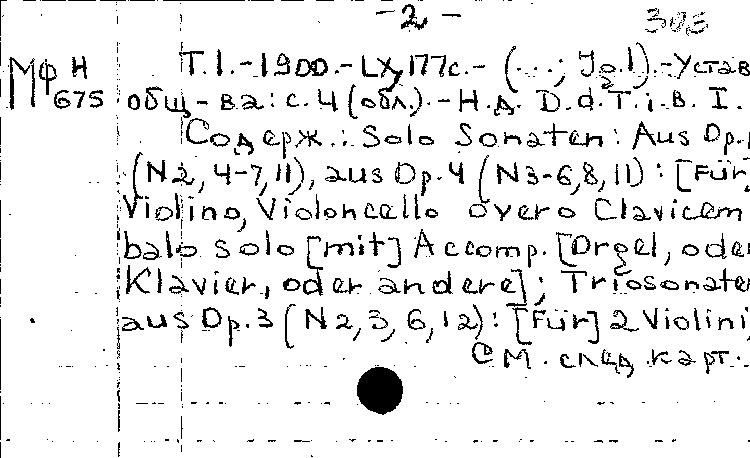 -2-
303
МФ Н 675
Т.1.-1900.-LX,177с.-(...; Jg.1).-Устав
общ-ва: с.4(обл.).-Н.д. D.d.T.i.B. I.
Содерж.: Solo Sonaten: Aus Op.1
(N2,4-7,11), aus Op.4 (N3-6,8,11): [Für]
Violino, Violoncello overo Clavicem
balo solo [mit] Accomp. [Orgel, oder
Klavier, oder andere]; Triosonaten
aus Op.3 (N2,3,6,12): [Für] 2 Violini,
См. след. карт.